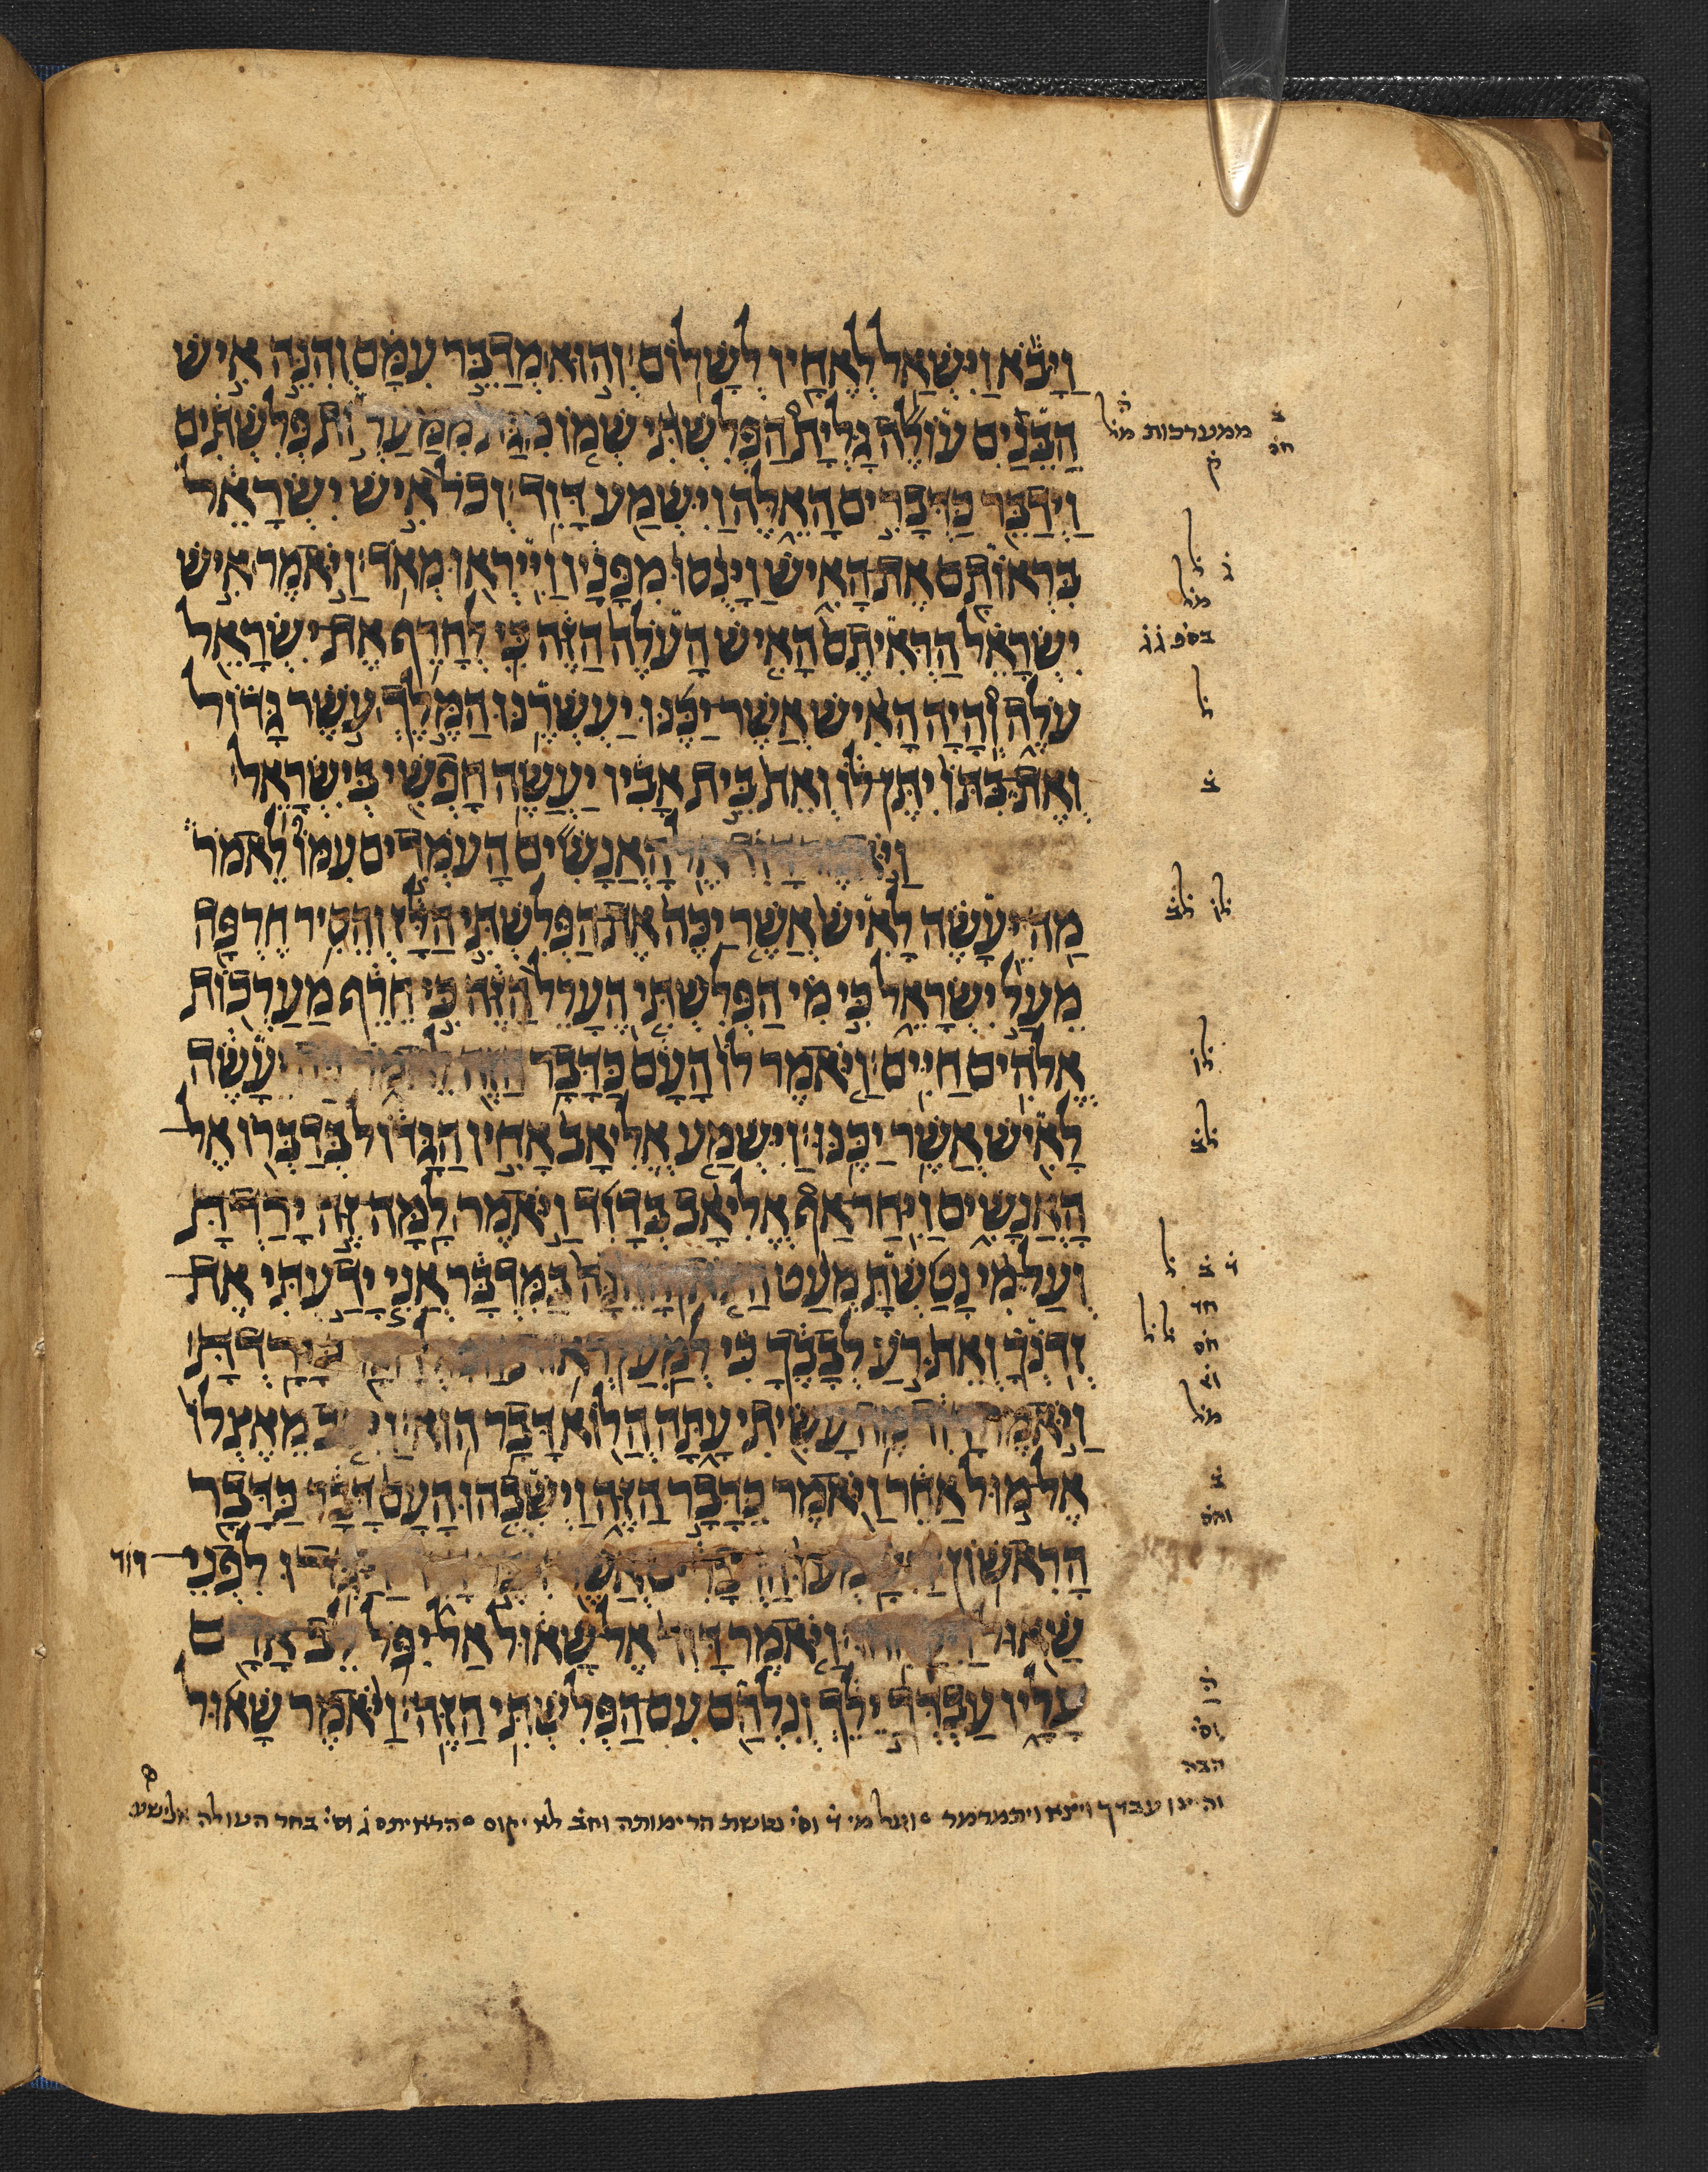 וַיָּבֹא וַיִּשְׁאַל לְאֶחָיו לְשָׁלוֹם׃ וְהוּא מְדַבֵּר עִמָּם וְהִנֵּה אִישׁ
הַבֵּנַיִם עוֹלֶה גָּלְיָת הַפְּלִשְׁתִּי שְׁמוֹ מִגַּת מִמַּעֲרוֹת פְּלִשְׁתִּים
וַיְדַבֵּר כַּדְּבָרִים הָאֵלֶּה וַיִּשְׁמַע דָּוִד׃ וְכֹל אִישׁ יִשְׂרָאֵל
בִּרְאוֹתָם אֶת־הָאִישׁ וַיָּנֻסוּ מִפָּנָיו וַיִּירְאוּ מְאֹד׃ וַיֹּאמֶר אִישׁ
יִשְׂרָאֵל הַרְּאִיתֶם הָאִישׁ הָעֹלֶה הַזֶּה כִּי לְחָרֵף אֶת־יִשְׂרָאֵל
עֹלֶה וְהָיָה הָאִישׁ אֲשֶׁר־יַכֶּנּוּ יַעְשְׁרֶנּוּ הַמֶּלֶךְ עֹשֶׁר גָּדוֹל
וְאֶת־בִּתּוֹ יִתֶּן־לוֹ וְאֵת בֵּית אָבִיו יַעֲשֶׂה חָפְשִׁי בְּיִשְׂרָאֵל׃
וַיֹּאמֶר דָּוִד אֶל־הָאֲנָשִׁים הָעֹמְדִים עִמּוֹ לֵאמֹר
מַה־יֵּעָשֶׂה לָאִישׁ אֲשֶׁר יַכֶּה אֶת־הַפְּלִשְׁתִּי הַלָּז וְהֵסִיר חֶרְפָּה
מֵעַל יִשְׂרָאֵל כִּי מִי הַפְּלִשְׁתִּי הֶעָרֵל הַזֶּה כִּי חֵרֵף מַעַרְכוֹת
אֱלֹהִים חַיִּים׃ וַיֹּאמֶר לוֹ הָעָם כַּדָּבָר הַזֶּה לֵאמֹר כֹּה יֵעָשֶׂה
לָאִישׁ אֲשֶׁר יַכֶּנּוּ׃ וַיִּשְׁמַע אֱלִיאָב אָחִיו הַגָּדוֹל בְּדַבְּרוֹ אֶל־
הָאֲנָשִׁים וַיִּחַר־אַף אֱלִיאָב בְּדָוִד וַיֹּאמֶר לָמָּה־זֶּה יָרַדְתָּ
וְעַל־מִי נָטַשְׁתָּ מְעַט הַצֹּאן הָהֵנָּה בַּמִּדְבָּר אֲנִי יָדַעְתִּי אֶת־
זְדֹנְךָ וְאֵת רֹעַ לְבָבֶךָ כִּי לְמַעַן רְאוֹת הַמִּלְחָמָה יָרָדְתָּ׃
וַיֹּאמֶר דָּוִד מֶה עָשִׂיתִי עָתָּה הֲלוֹא דָּבָר הוּא׃ וַיִּסֹּב מֵאֶצְלוֹ
אֶל־מוּל אַחֵר וַיֹּאמֶר כַּדָּבָר הַזֶּה וַיְשִׁבֻהוּ הָעָם דָּבָר כַּדָּבָר
הָרִאשׁוֹן׃ וַיִּשָּׁמְעוּ הַדְּבָרִים אֲשֶׁר דִּבֶּר דָּוִד וַיַּגִּדוּ לִפְנֵי־ דוד
שָׁאוּל וַיִּקָּחֵהוּ׃ וַיֹּאמֶר דָּוִד אֶל־שָׁאוּל אַל־יִפֹּל לֵב־אָדָם
עָלָיו עַבְדְּךָ יֵלֵךְ וְנִלְחַם עִם־הַפְּלִשְׁתִּי הַזֶּה׃ וַיֹּאמֶר שָׁאוּל
ממערכות
ק
ג ל
ל
ב
ל
הבה
עבדך ויצא ויתמרמר ועל מי נטשת לא יקום הראיתם ג וס׳ בחר העולה אלישע